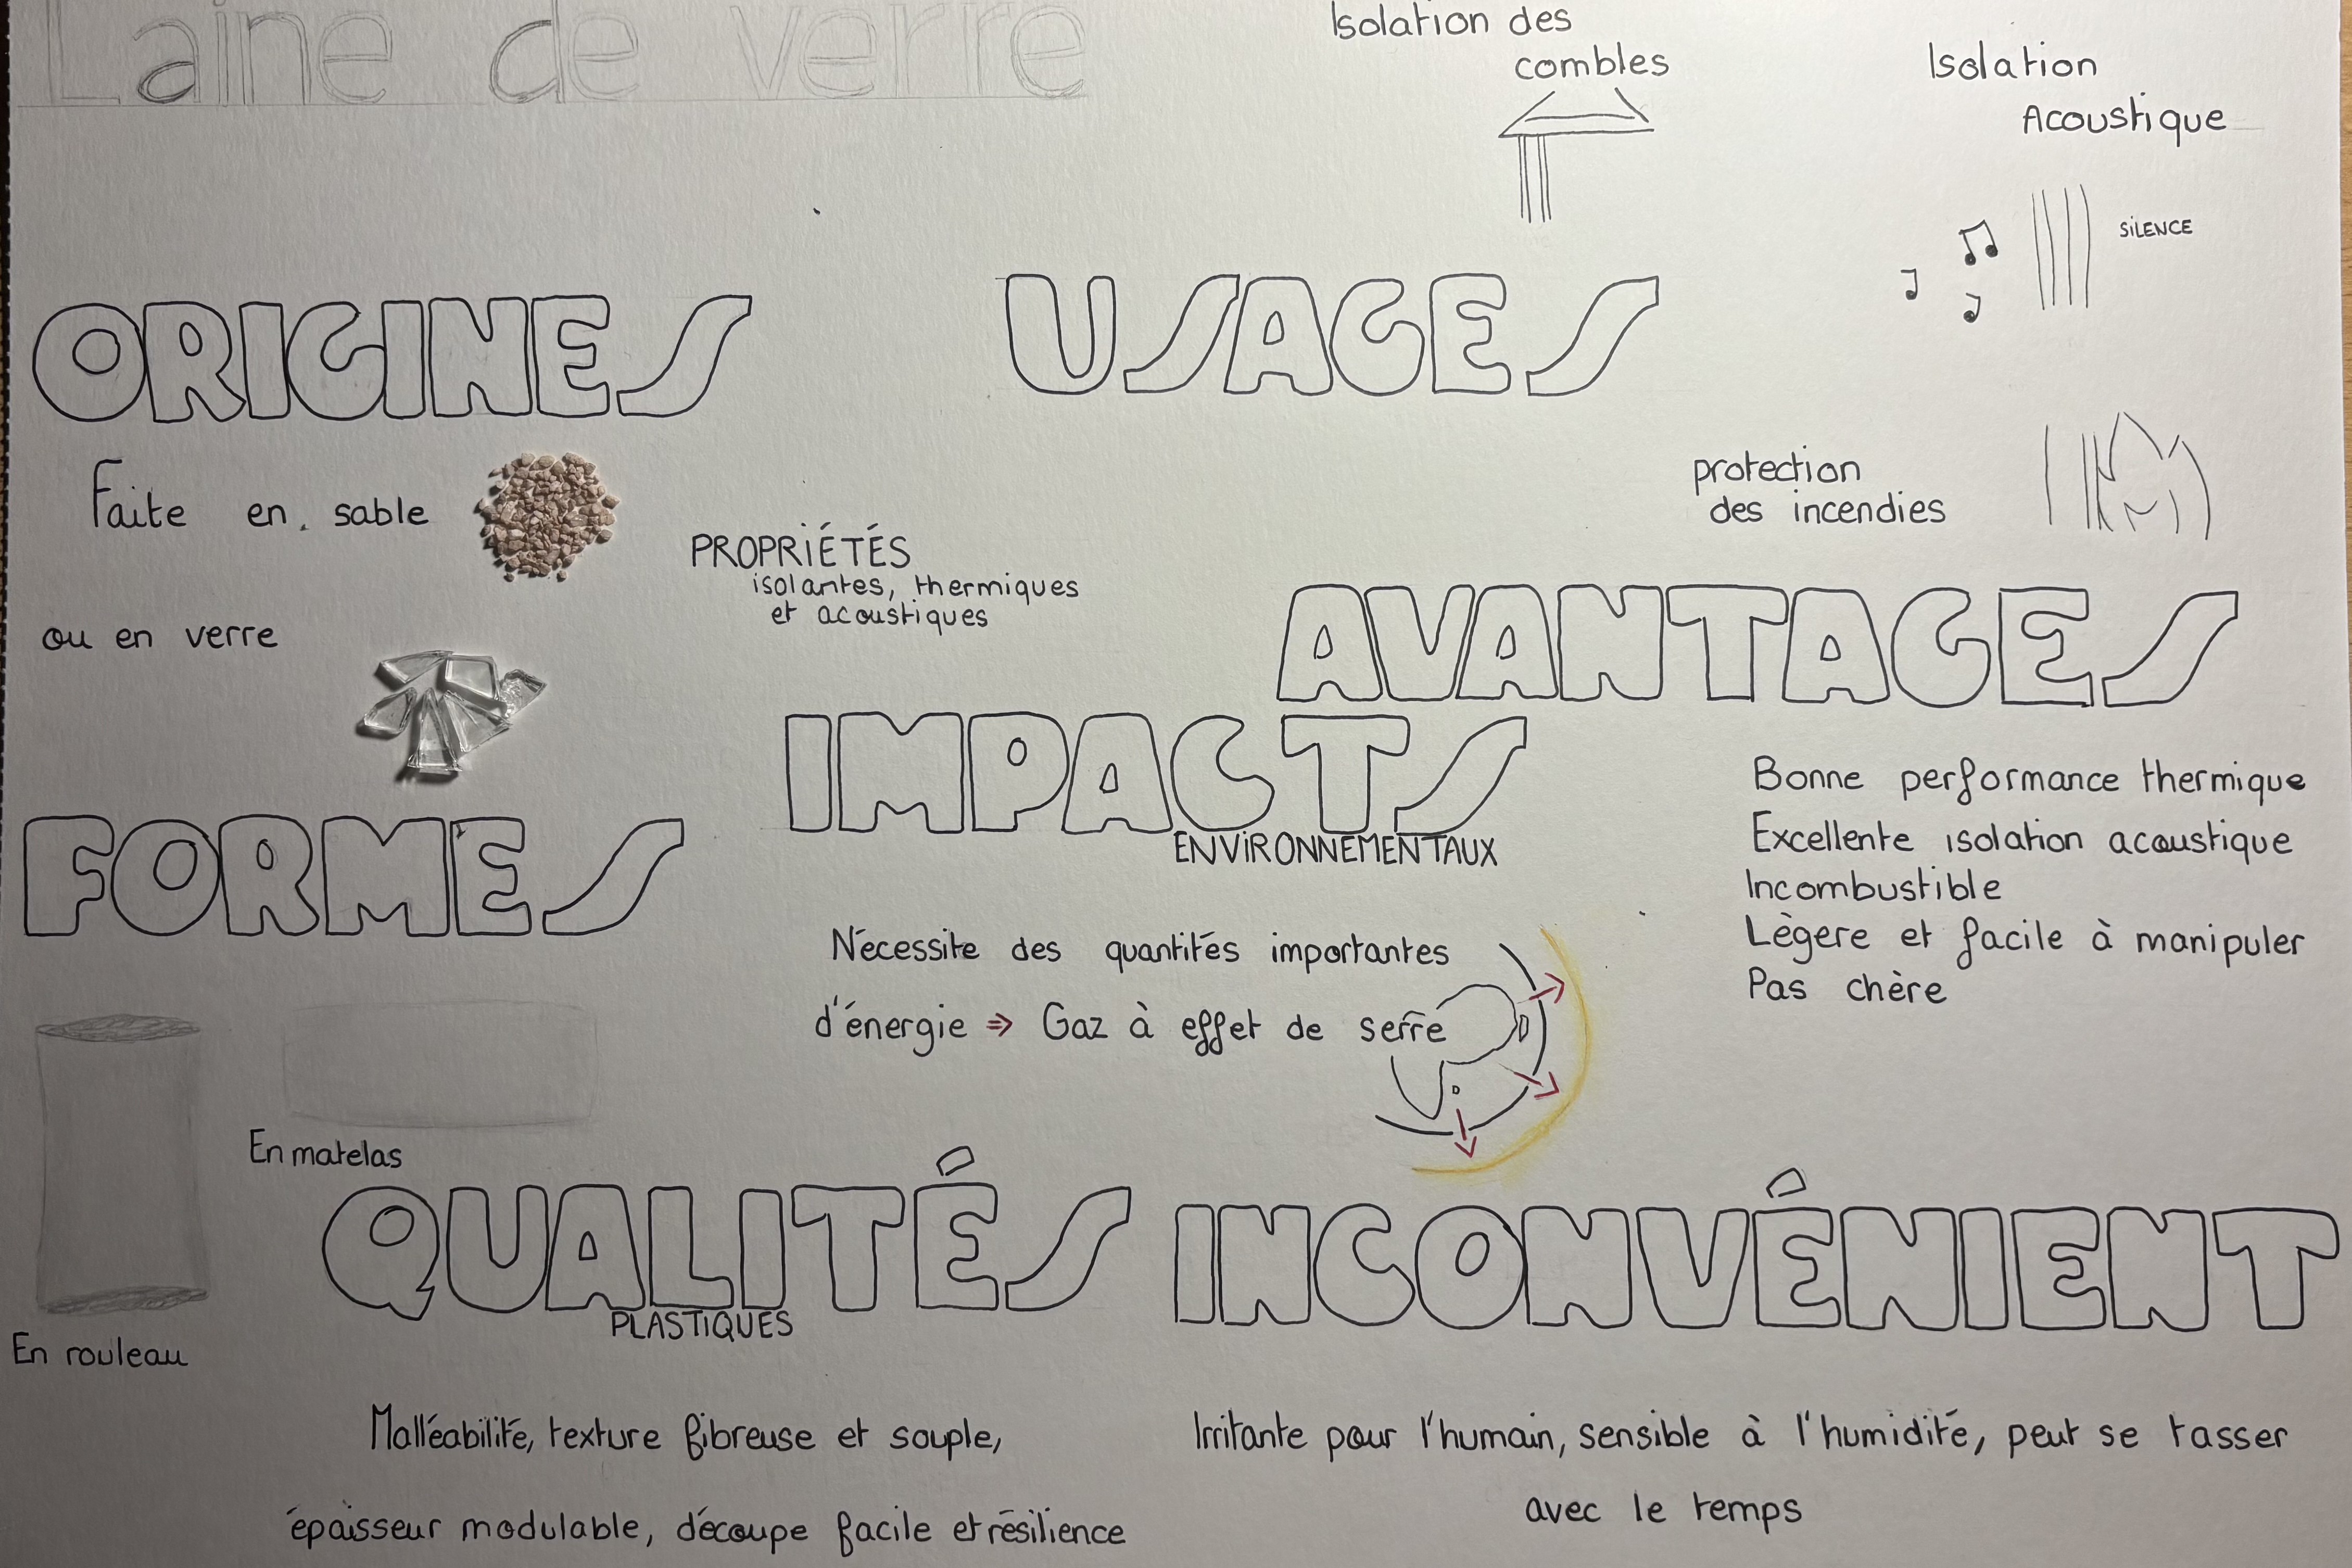 Laine de verre
Isolation des
combles
Isolation
Acoustique
SiLENCE
ORIGINES
USAGES
Faite en sable
ou en verre
PROPRiÉTÉS
isolantes, thermiques
et acoustiques
protection
des incendies
AVANTAGES
Bonne performance thermique
Excellente isolation acoustique
Incombustible
Lègere et facile à manipuler
Pas chère
IMPACTS
ENViRONNEMENTAUX
Nécessite des quantités importantes
d'énergie ⇒ Gaz à effet de serre
FORMES
En matelas
En rouleau
QUALITÉS
PLASTiQUES
Malléabilité, texture fibreuse et souple,
épaisseur modulable, découpe facile et résilience
INCONVÉNIENT
Irritante pour l'humain, sensible à l'humidité, peut se tasser
avec le temps